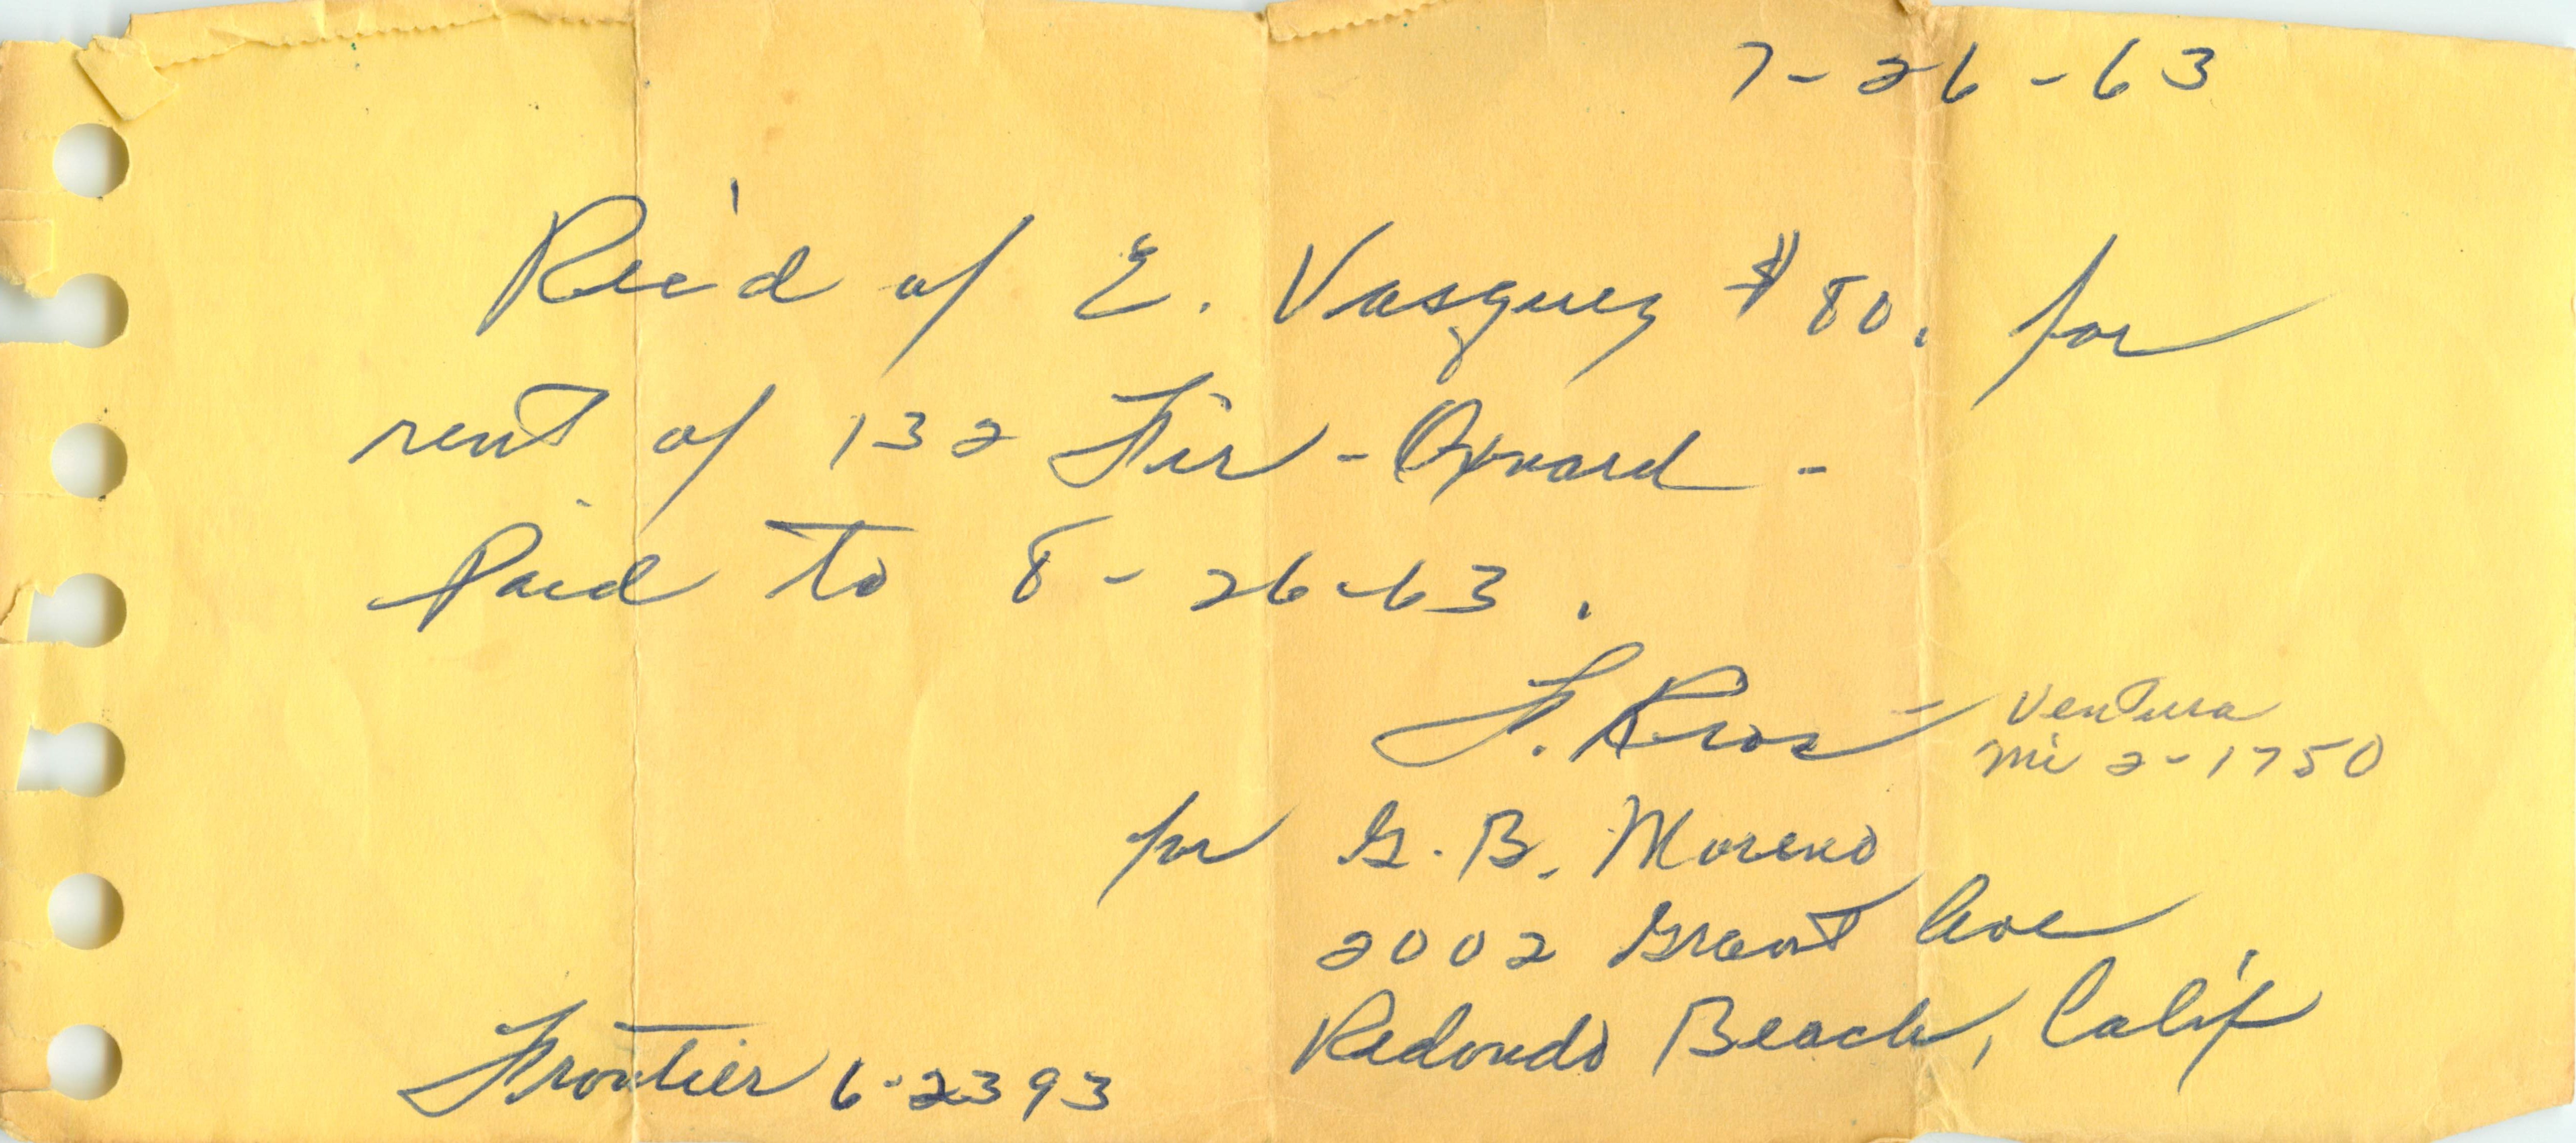 7-26-63
Rec'd of E. Vasquez $80. for
rent of 132 Fir - Oxnard -
Paid to 8-26-63.
F. Rios - Ventura
Mi 2-1750
for G. B. Moreno
2002 Grant Ave
Redondo Beach, Calif.
Frontier 6-2393